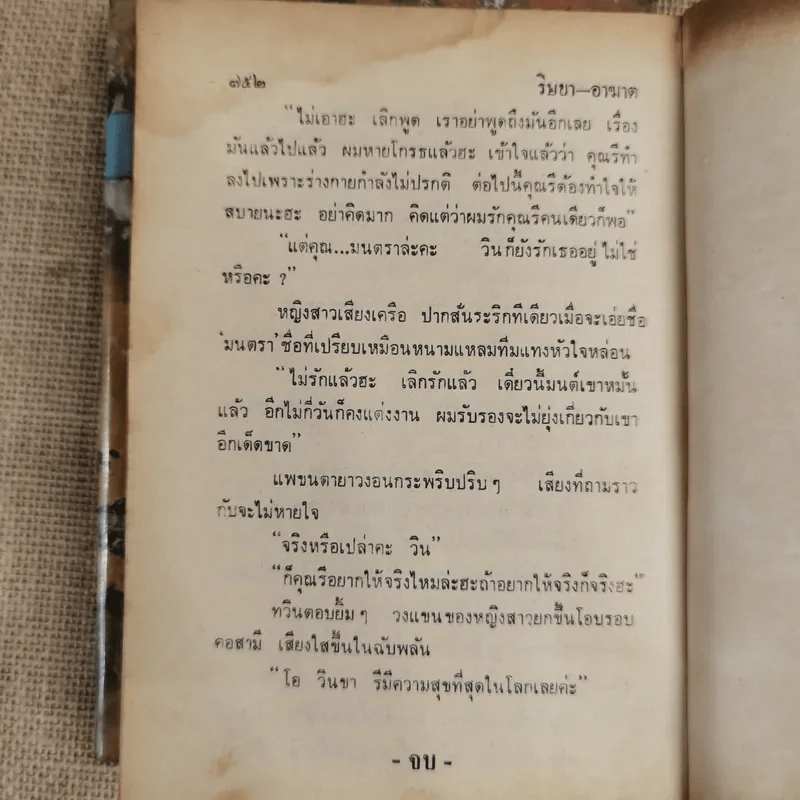 ๗๕๒
ริษยา—อาฆาต
“ไม่เอาฮะ เลิกพูด เราอย่าพูดถึงมันอีกเลย เรื่อง
มันแล้วไปแล้ว ผมหายโกรธแล้วฮะ เข้าใจแล้วว่า คุณรีทำ
ลงไปเพราะร่างกายกำลังไม่ปรกติ ต่อไปนี้คุณรีต้องทำใจให้
สบายนะฮะ อย่าคิดมาก คิดแต่ว่าผมรักคุณรีคนเดียวก็พอ”
“แต่คุณ...มนตราล่ะคะ วินก็ยังรักเธออยู่ ไม่ใช่
หรือคะ ?”
หญิงสาวเสียงเครือ ปากสั่นระริกทีเดียวเมื่อจะเอ่ยชื่อ
‘มนตรา’ ชื่อที่เปรียบเหมือนหนามแหลมทิ่มแทงหัวใจหล่อน
“ไม่รักแล้วฮะ เลิกรักแล้ว เดี๋ยวนี้มนต์เขาหมั้น
แล้ว อีกไม่กี่วันก็คงแต่งงาน ผมรับรองจะไม่ยุ่งเกี่ยวกับเขา
อีกเด็ดขาด”
แพขนตายาวงอนกระพริบปริบ ๆ เสียงที่ถามราว
กับจะไม่หายใจ
“จริงหรือเปล่าคะ วิน”
“ก็คุณรีอยากให้จริงไหมล่ะฮะถ้าอยากให้จริงก็จริงฮะ”
ทวินตอบยิ้ม ๆ วงแขนของหญิงสาวยกขึ้นโอบรอบ
คอสามี เสียงใสขึ้นในฉับพลัน
“โอ วินขา รีมีความสุขที่สุดในโลกเลยค่ะ”
- จบ -